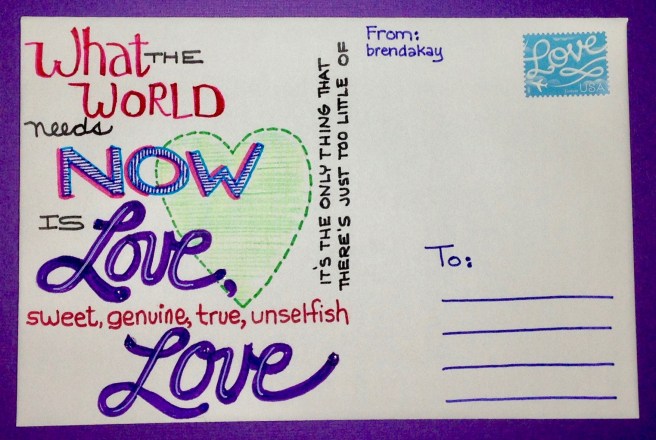 What THE
WORLD
needs
NOW
IS
Love,
sweet, genuine, true, unselfish
Love
IT'S THE ONLY THING THAT
THERE'S JUST TOO LITTLE OF
From:
brendakay
Love
USA
To: